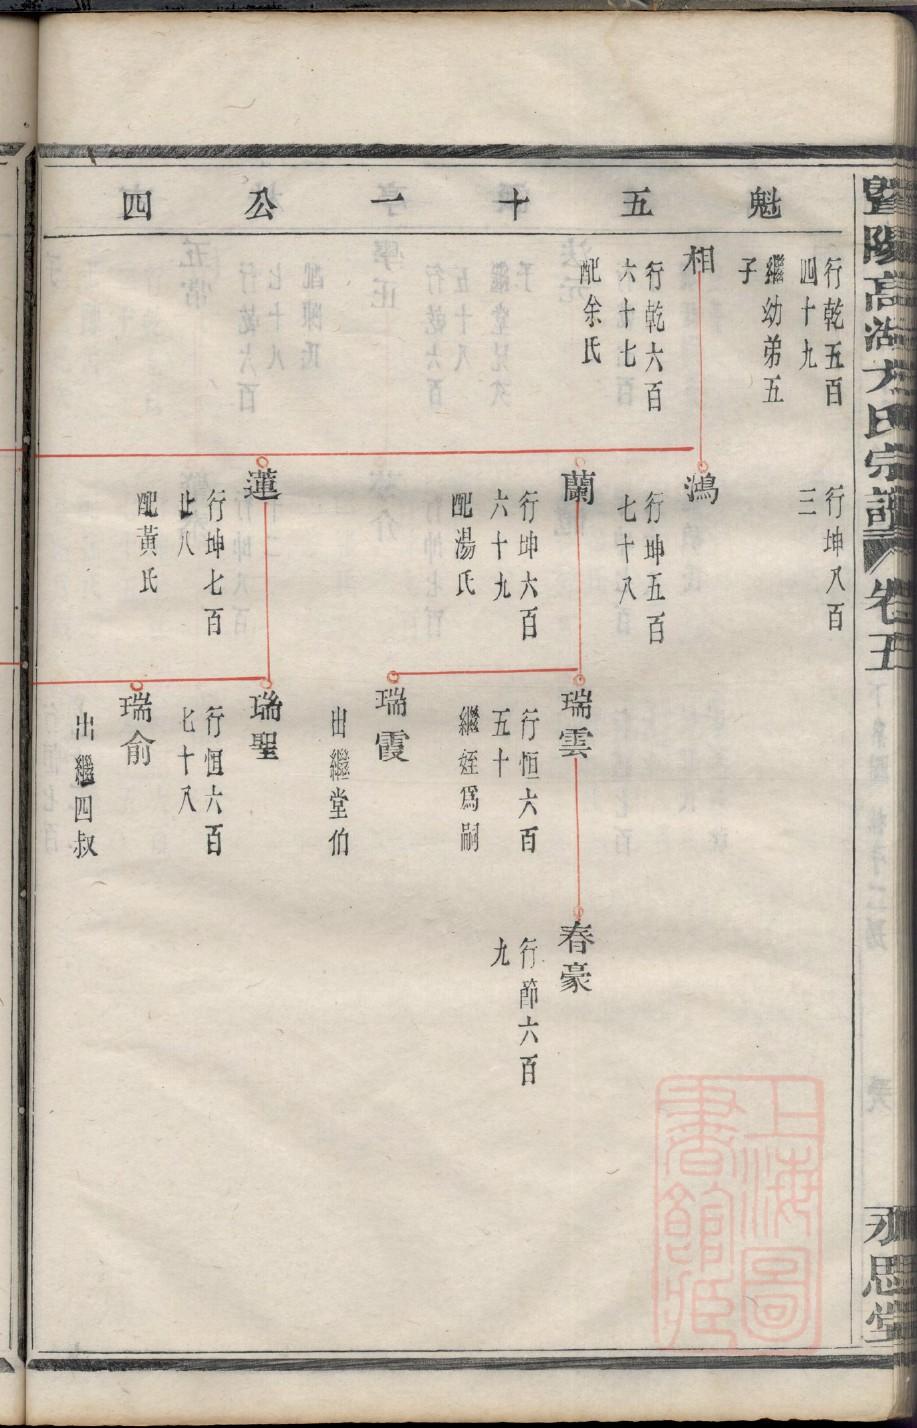 暨陽高湖方氏宗譜 卷五
永思堂
魁五十一公四
行乾五百
四十九
繼幼弟五
子
相
行乾六百
六十七
配余氏
行坤八百
三
鴻
行坤五百
七十八
蘭
行坤六百
六十九
配湯氏
蓮
行坤七百
七八
配黃氏
瑞雲
行恒六百
五十
繼姪爲嗣
瑞霞
出繼堂伯
瑞聖
行恒六百
七十八
瑞俞
出繼四叔
春豪
行節六百
九
上海圖
書館藏